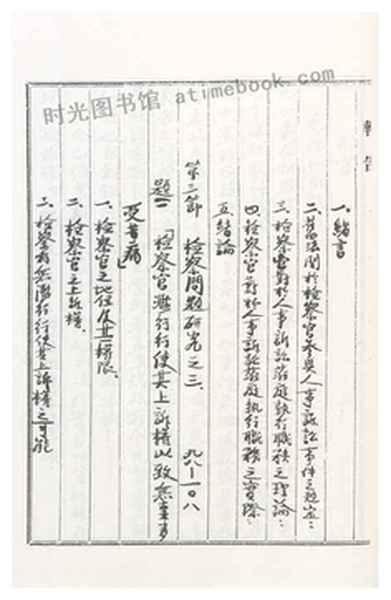 时光图书馆 atimebook.com
一、緒言
二、舊法關於檢察官參與人事訴訟事件之規定：
三、檢察官對於人事訴訟蒞庭執行職務之理論：
四、檢察官對於人事訴訟蒞庭執行職務之實際：
五、結論
第三節 檢察問題研究之三、 九八—一〇八
題：「檢察官濫行行使其上訴權以致無辜者
受苦痛」
一、檢察官之地位及其權限、
二、檢察官之上訴權、
三、檢察官無濫行行使其上訴權之可能